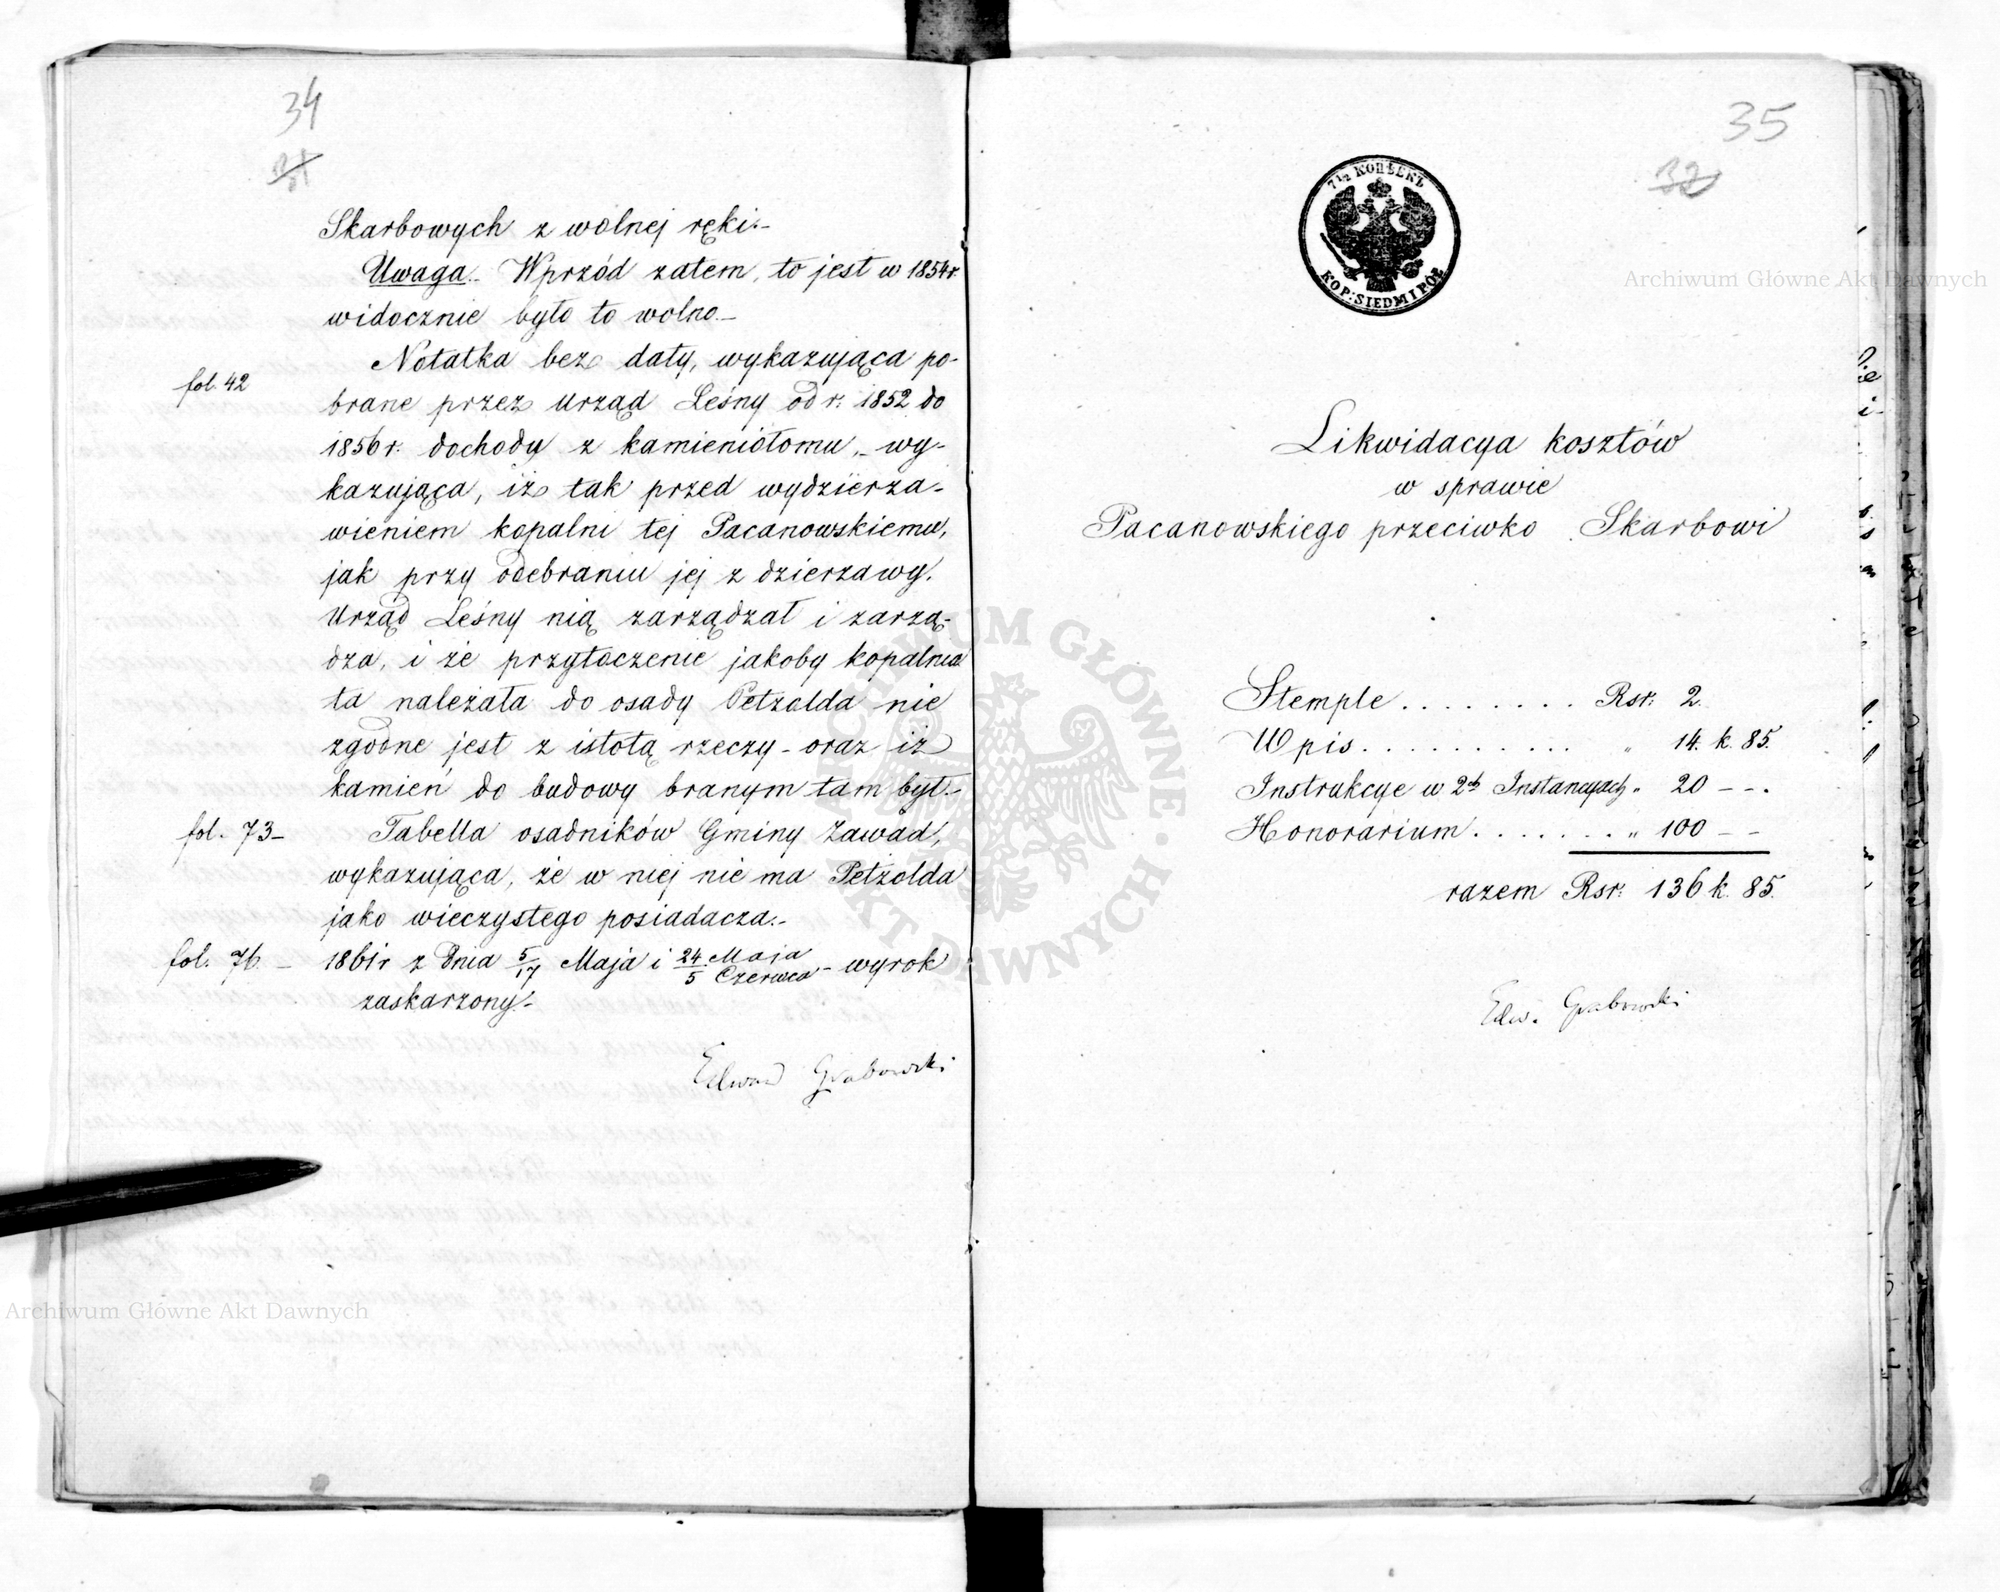 34
Skarbowych z wolnej ręki.-
Uwaga. Wprzód zatem, to jest w 1854r
widocznie było to wolno.-
fol. 42
Notatka bez daty, wykazująca po-
brane przez Urząd Leśny od r: 1852 do
1856r. dochody z kamieniołomu, - wy-
kazująca, iż tak przed wydzierża-
wieniem kopalni tej Pacanowskiemu,
jak przy odebraniu jej z dzierżawy.
Urząd Leśny nią zarządzał i zarzą-
dza, i że przytoczenie jakoby kopalnia
ta należała do osady Petzolda nie
zgodne jest z istotą rzeczy - oraz iż
kamień do budowy branym tam był.-
fol. 73-
Tabella osadników Gminy Zawad,
wykazująca, że w niej nie ma Petzolda
jako wieczystego posiadacza.-
fol. 76 -
1861r z dnia 5/17 Maja i 24 Maja/5 Czerwca - wyrok
zaskarzony.-
Edward Grabowski
35
32
7 1/2 КОПѢЕКЪ
KOP: SIEDM I PÓŁ
Likwidacya kosztów
w sprawie
Pacanowskiego przeciwko Skarbowi
Stemple . . . . . . . . Rsr: 2.
Wpis . . . . . . . . . . " 14. k. 85.
Instrukcye w 2ch Instancyach " 20 - - .
Honorarium . . . . . . . " 100 - -
razem Rsr: 136 k. 85.
Edw. Grabowski
Archiwum Główne Akt Dawnych
ARCHIWUM GŁÓWNE AKT DAWNYCH
Archiwum Główne Akt Dawnych